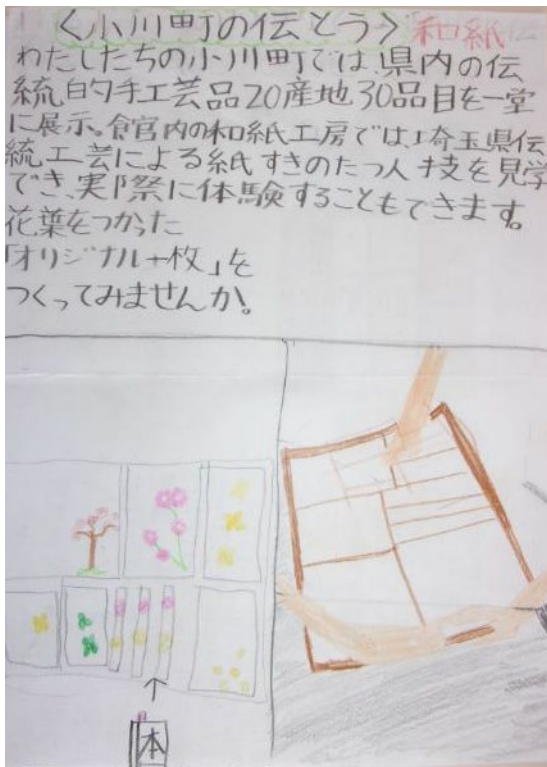 ＜小川町の伝とう＞和紙
わたしたちの小川町では、県内の伝
統的手工芸品20産地30品目を一堂
に展示。館内の和紙工房では、埼玉県伝
統工芸による紙すきのたつ人技を見学
でき、実際に体験することもできます。
花葉をつかった
「オリジナル一枚」を
つくってみませんか。
本